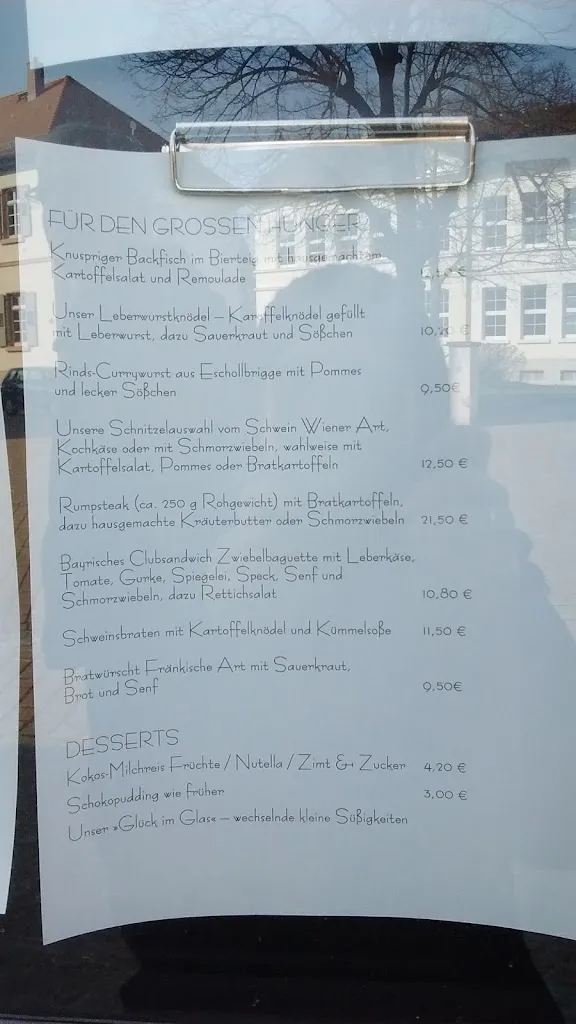 FÜR DEN GROSSEN HUNGER
Knuspriger Backfisch im Bierteig mit hausgemachtem
Kartoffelsalat und Remoulade
Unser Leberwurstknödel – Karoffelknödel gefüllt
mit Leberwurst, dazu Sauerkraut und Sößchen 10,20 €
Rinds-Currywurst aus Eschollbrigge mit Pommes
und lecker Sößchen 9,50€
Unsere Schnitzelauswahl vom Schwein Wiener Art,
Kochkäse oder mit Schmorzwiebeln, wahlweise mit
Kartoffelsalat, Pommes oder Bratkartoffeln 12,50 €
Rumpsteak (ca. 250 g Rohgewicht) mit Bratkartoffeln,
dazu hausgemachte Kräuterbutter oder Schmorzwiebeln 21,50 €
Bayrisches Clubsandwich Zwiebelbaguette mit Leberkäse,
Tomate, Gurke, Spiegelei, Speck, Senf und
Schmorzwiebeln, dazu Rettichsalat 10,80 €
Schweinsbraten mit Kartoffelknödel und Kümmelsoße 11,50 €
Bratwürscht Fränkische Art mit Sauerkraut,
Brot und Senf 9,50€
DESSERTS
Kokos-Milchreis Früchte / Nutella / Zimt & Zucker 4,20 €
Schokopudding wie früher 3,00 €
Unser »Glück im Glas« – wechselnde kleine Süßigkeiten